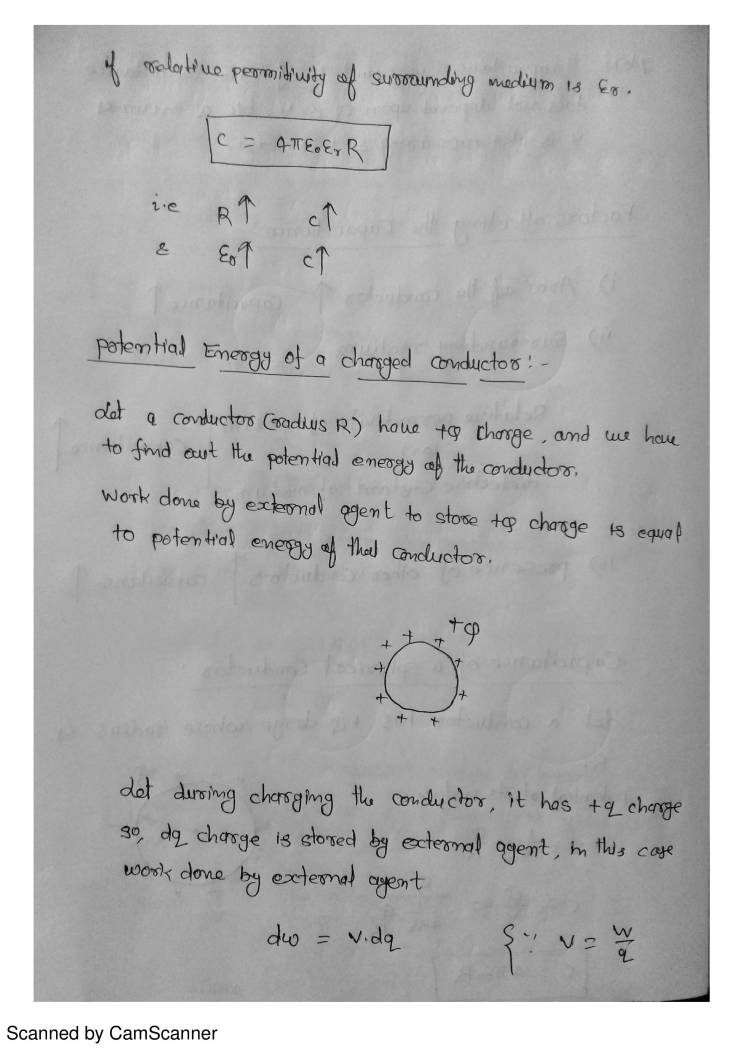 if relative permitivity of surrounding medium is εr.
C = 4πε₀εrR
i.e R↑ C↑
& εr↑ C↑
Potential Energy of a charged conductor:-
Let a conductor (radius R) have +Q charge, and we have
to find out the potential energy of the conductor.
Work done by external agent to store +Q charge is equal
to potential energy of that conductor.
+Q
+ + + + + + + + +
Let during charging the conductor, it has +q charge
so, dq charge is stored by external agent, in this case
work done by external agent
dw = v.dq { ∵ v = w/q
Scanned by CamScanner